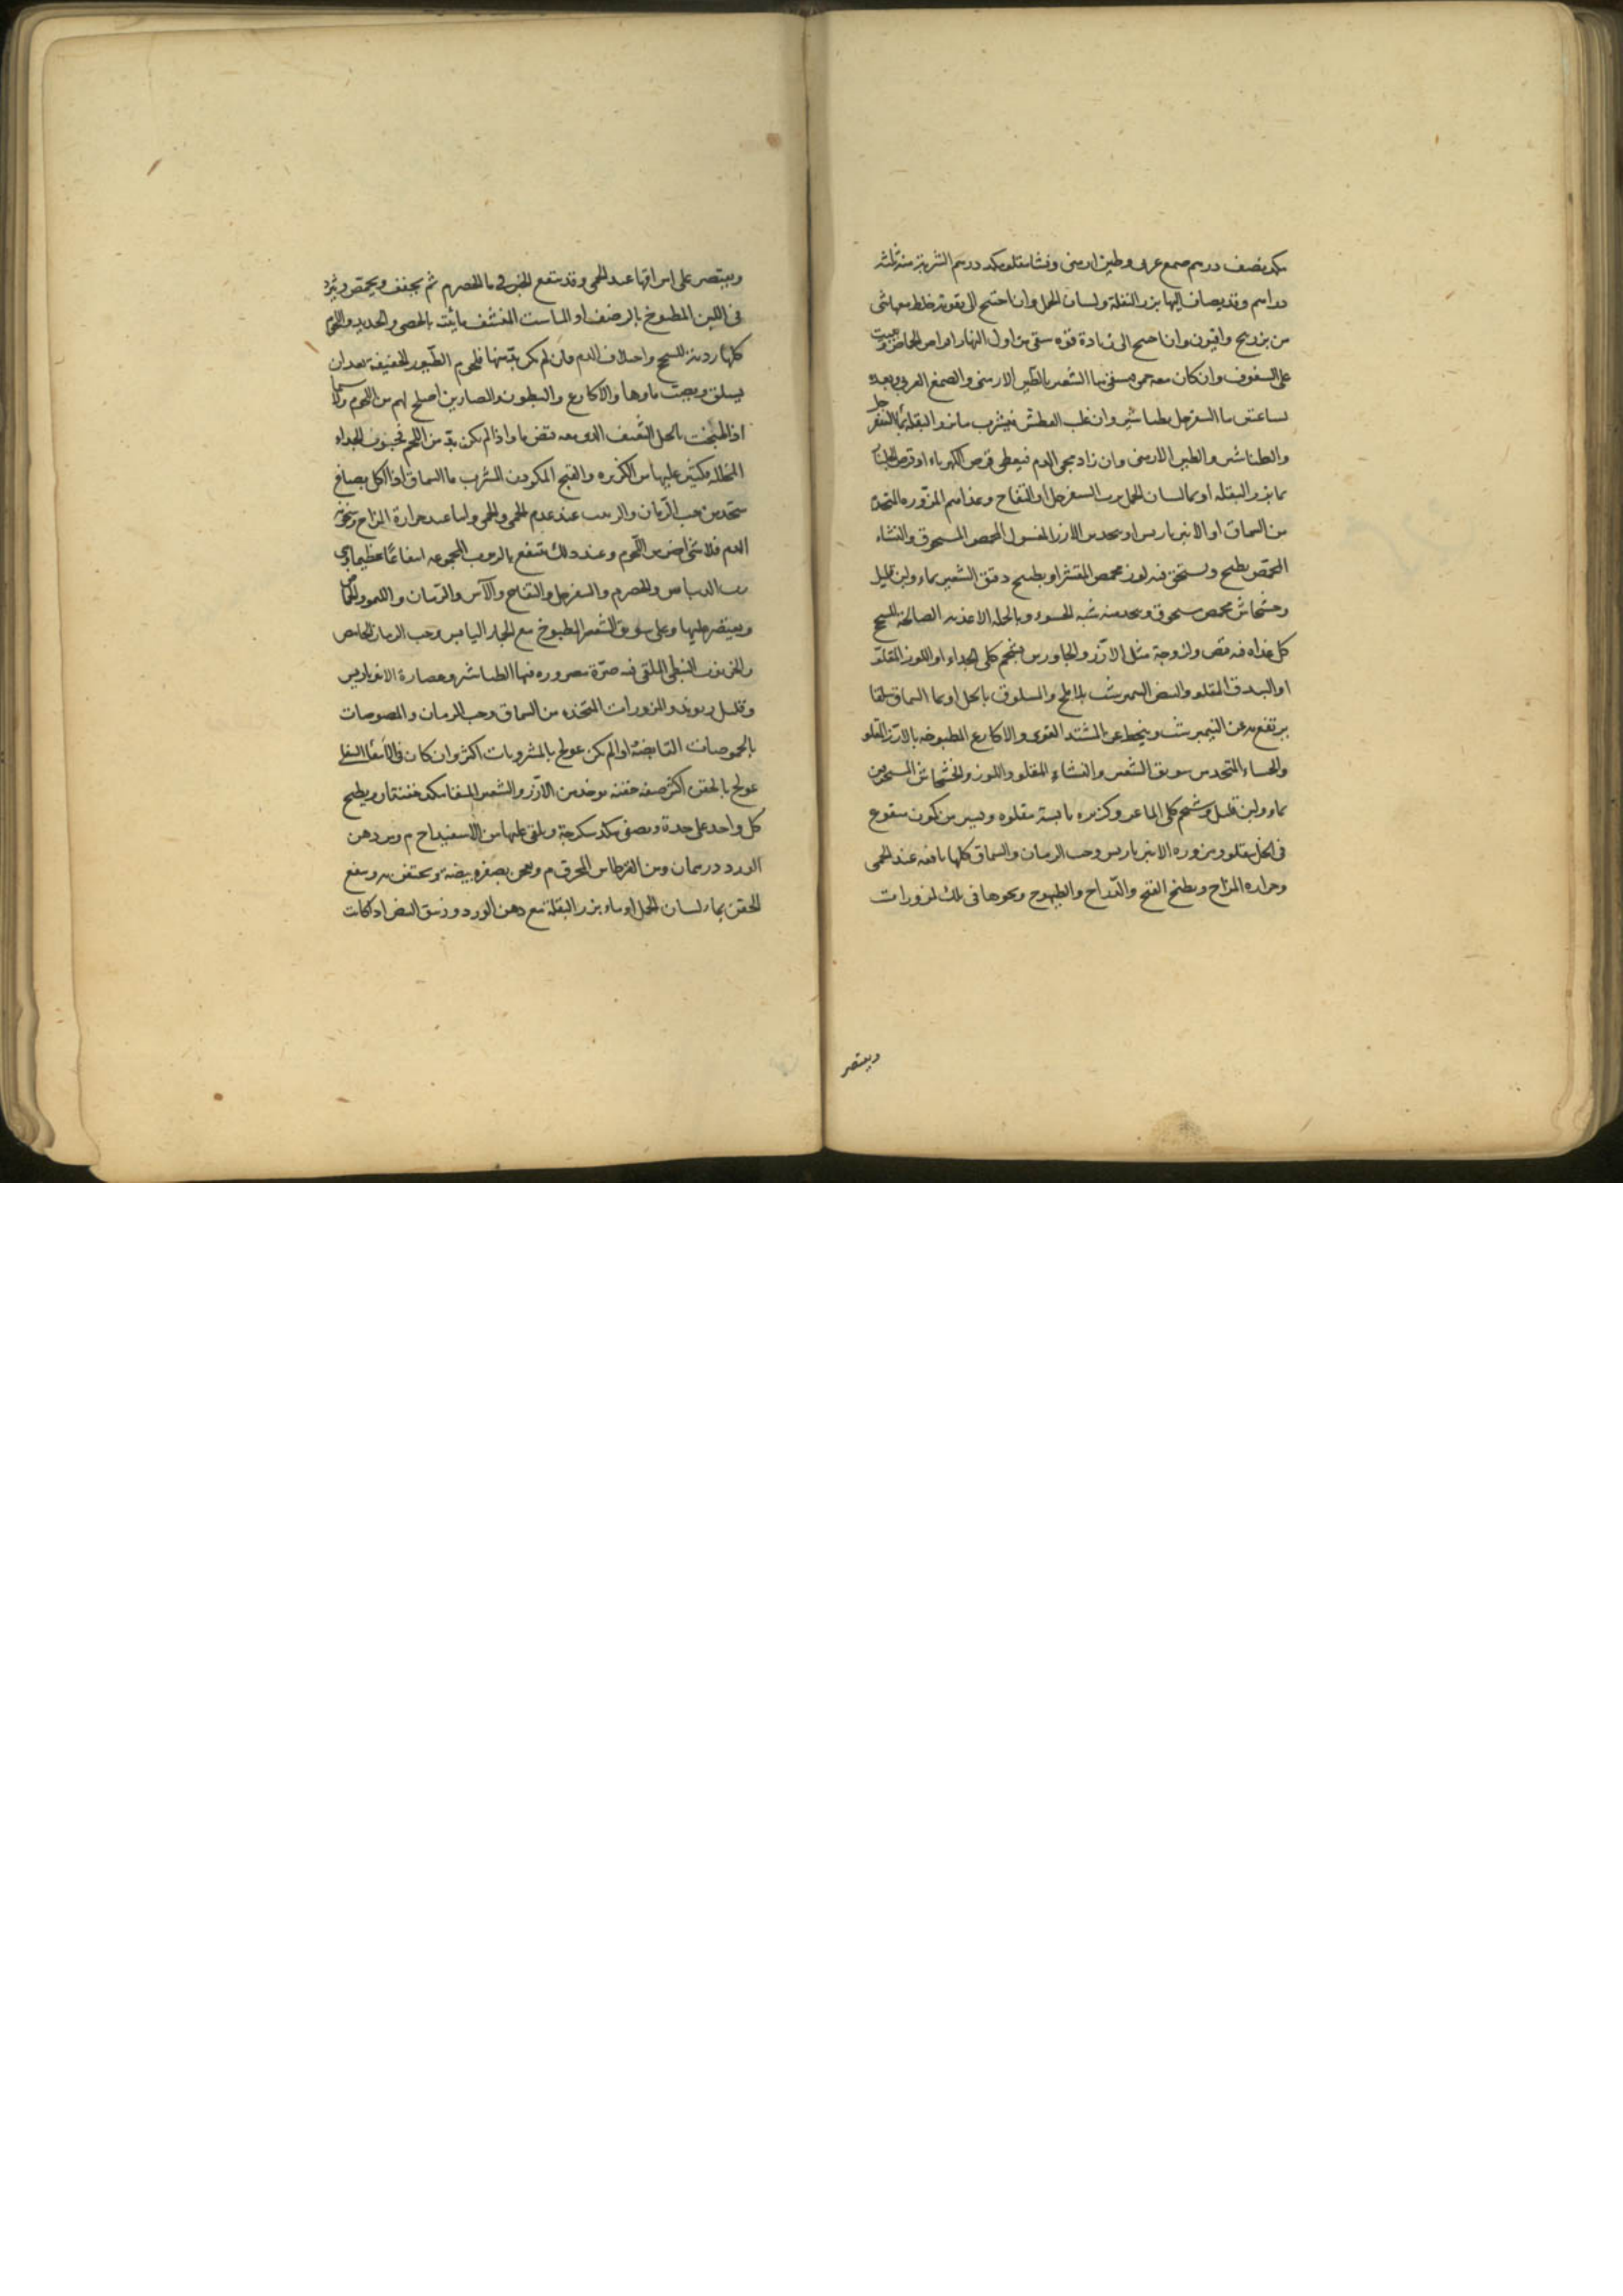 مكد نصف درهم صمغ عربى وطين ارمنى ونشا مقلو مكد درهم الشربة منه ثلثه
دراهم وقد يضاف اليها بزر البقلة ولسان الحمل وان احتيج الى تقوية خلط معها شى
من بزر بنج وافيون وان احتيج الى زيادة قوه سقى من اول النهار اقراص الحماض
على السفوف وان كان معه حمى فيسقى ما الشعير بالطين الارمنى والصمغ العربى وبعده
لساعتين ما السفرجل بطباشير وان غلب العطش فيشرب ما بزر البقلة بما السفرجل
والطباشير والطين الارمنى وان زاد مجى الدم فيعطى قرص الكهرباء او قرص الجلنار
بما بزر البقله او بما لسان الحمل برب السفرجل او التفاح وغذاهم المزوره المتخذة
من السماق او الانبرباريس او يتخذ من الارز المغسول المحمص المسحوق والنشاء
المحمص يطبخ ويسحق فيه لوز محمص المقشر او يطبخ دقيق الشعير بماء ولبن قليل
وخشخاش محمص مسحوق ويتخذ منه شبه الحسو وبالجملة الاغذيه الصالحة للسحج
كل غذاء فيه قبض ولزوجة مثل الارز والجاورس بشحم كلى الجداء او اللوز المقلو
او البندق المقلو والبيض النيمبرشت بالملح والمسلوق بالخل او بما السماق سلقا
يرتفع به عن النيمبرشت وينحط عن المشتد القوى والاكارع المطبوخه بالارز المقلو
والحساء المتخذ من سويق الشعير والنشاء المقلو واللوز والخشخاش المسحوقين
بماء ولبن قليل وشحم كلى الماعز وكزبره يابسة مقلوه ويسير من كمون منقوع
فى الخل مقلو ومزوره الانبرباريس وحب الرمان والسماق كلها نافعه عند الحمى
وحراره المزاج ويطبخ القبج والدراج والطيهوج ونحوها فى تلك المزورات
ويقتصر
ويقتصر على امراقها عند الحمى وقد ينقع الخبز فى ما الحصرم ثم يجفف ويحمص ويثرد
فى اللبن المطبوخ بالرضف او الماست المنشف مائيته بالحصى والحديد واللحوم
كلها رديه للسحج واختلاف الدم فان لم يكن بد منها فلحوم الطيور الخفيفة بعد ان
يسلق ويصب ماوها والاكارع والبطون والمصارين اصلح لهم من اللحوم ولا سيما
اذا طبخت بالخل الثقيف الذى معه قبض ما واذا لم يكن بد من اللحم فجنوب الجداء
المخلله ويكثر عليها من الكزبره والقبج المكردن المشرب ما السماق اذا اكل بصباغ
يتخذ من حب الرمان والزبيب عند عدم الحمى والحمى واما عند حرارة المزاج وسخونة
الدم فلا شى اضر من اللحوم وعند ذلك ينتفع بالربوب المجموعه انتفاعا عظيما اى
رب الريباس والحصرم والسفرجل والتفاح والآس والرمان والليمو والحماض
ويقتصر عليها وعلى سويق الشعير المطبوخ مع الجمار اليابس وحب الرمان الحامض
والخرنوب النبطى الملقى فيه صرة مصروره فيها الطباشير وعصارة الانبرباريس
وقليل ريوند والمزورات المتخذه من السماق وحب الرمان والمصوصات
بالحموضات القابضة او الم يكن عولج بالمشروبات اكثر وان كان فى الامعا السفلى
عولج بالحقن اكثر صفه حقنه يوخذ من الارز والشعير المسفا مكد حفنتان ويطبخ
كل واحد على حدة ويصفى مكد سكرجة ويلقى عليها من الاسفيداج م ومن دهن
الورد درهمان ومن القرطاس المحرق م ويعجن بصفرة بيضة ويحتقن به وينفع
الحقن بماء لسان الحمل او ماء بزر البقلة مع دهن الورد وزيبق البيض اذا كانت